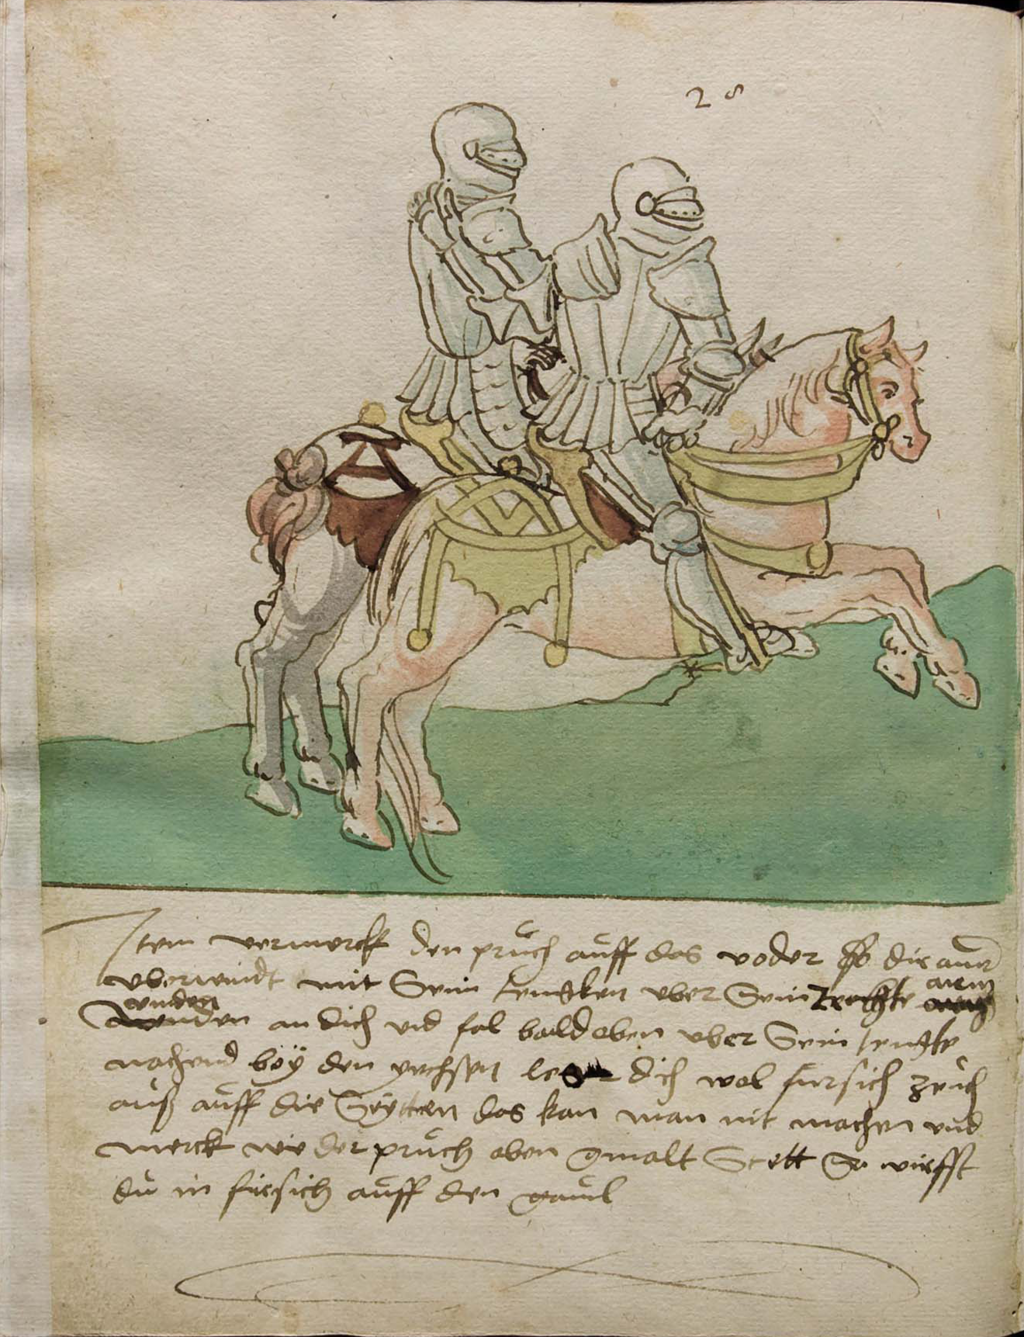 28
Item vermerck den pruch auff das voder so dir ainer
vberwindt mit Sein lencken vber Sein rechte arm
wenden an dich vnd fal bald oben vber Sein lencke
nachend bÿ den yechsen dich wol fursich zeuch
auß auff die Seytten das kan man nit machen vnd
merck wie der pruch oben gmalt Stett So wirfft
du in fürsich auff den gaul